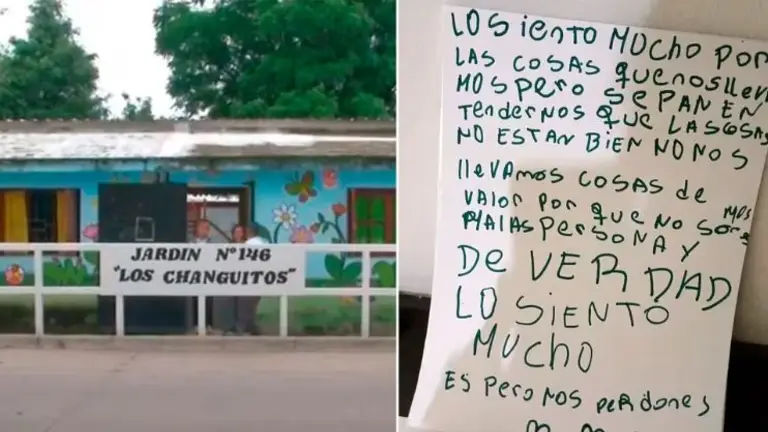 JARDIN Nº146
"LOS CHANGUITOS"
LO SiENTO MUCHO POR
LAS COSAS QUENOSLLEVA
MOS PERO SEPAN EN
TENDERNOS QUE LASCOSAS
NO ESTAN BIEN NO NOS
LLEVAMOS COSAS de
VALOR POR QUE NO SOMOS
MALAS PERSONA Y
DE VERDAD
LO SIENTO
MUCHO
ES PERO NOS PERDONES